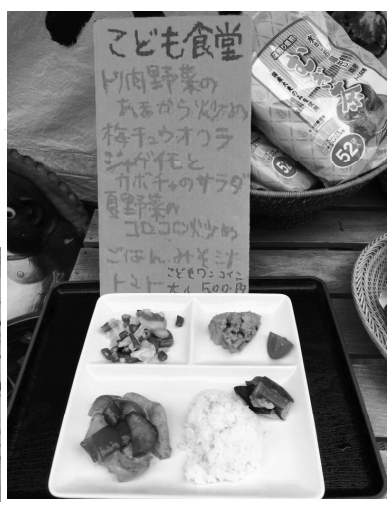 こども食堂
トリ肉野菜の
あまから炒め
梅チュウオクラ
ジャガイモと
カボチャのサラダ
夏野菜の
コロコロ炒め
ごはん、みそ汁
トマト
こどもワンコイン
大人500円
52